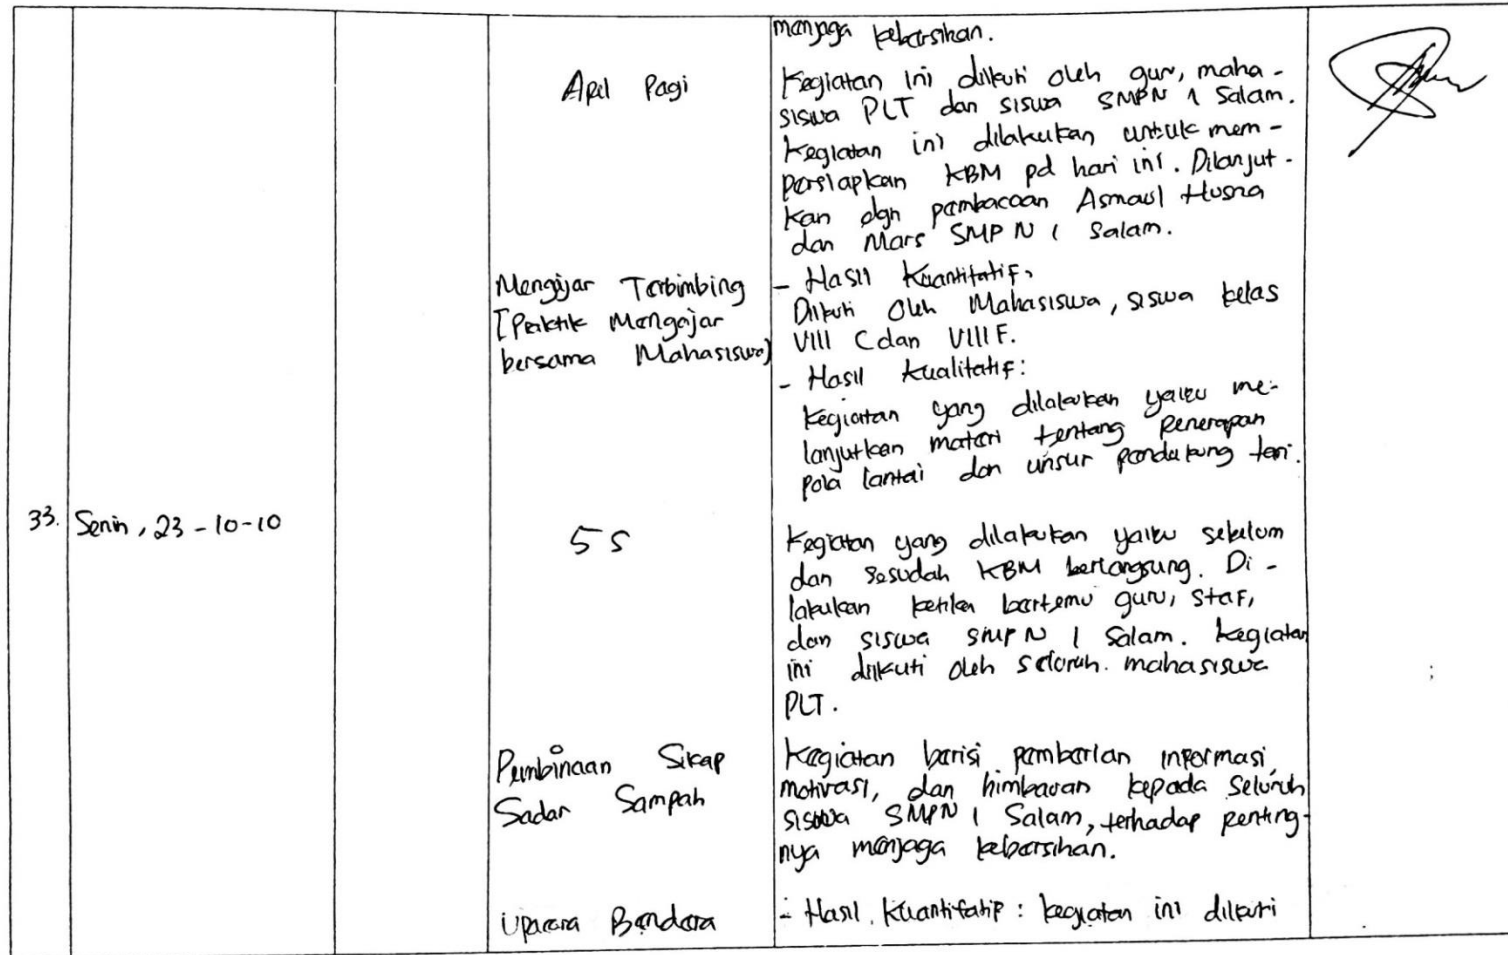 menjaga kebersihan.
Apel Pagi
Kegiatan ini diikuti oleh guru, maha-
siswa PLT dan siswa SMPN 1 Salam.
Kegiatan ini dilakukan untuk mem-
persiapkan KBM pd hari ini. Dilanjut-
kan dgn pembacaan Asmaul Husna
dan Mars SMP N 1 Salam.
Mengajar Terbimbing
[Praktik Mengajar
bersama Mahasiswa]
- Hasil Kuantitatif.
Diikuti Oleh Mahasiswa, siswa kelas
VIII C dan VIII F.
- Hasil Kualitatif:
Kegiatan yang dilakukan yaitu me-
lanjutkan materi tentang Penerapan
pola lantai dan unsur pendukung tari.
33. Senin, 23-10-10
5 S
Kegiatan yang dilakukan yaitu sebelum
dan sesudah KBM berlangsung. Di-
lakukan ketika bertemu guru, staf,
dan siswa SMP N 1 Salam. Kegiatan
ini diikuti oleh seluruh mahasiswa
PLT.
Pembinaan Sikap
Sadar Sampah
Kegiatan berisi pemberian informasi,
motivasi, dan himbauan kepada seluruh
siswa SMPN 1 Salam, terhadap penting-
nya menjaga kebersihan.
Upacara Bendera
- Hasil Kuantitatif : kegiatan ini diikuti